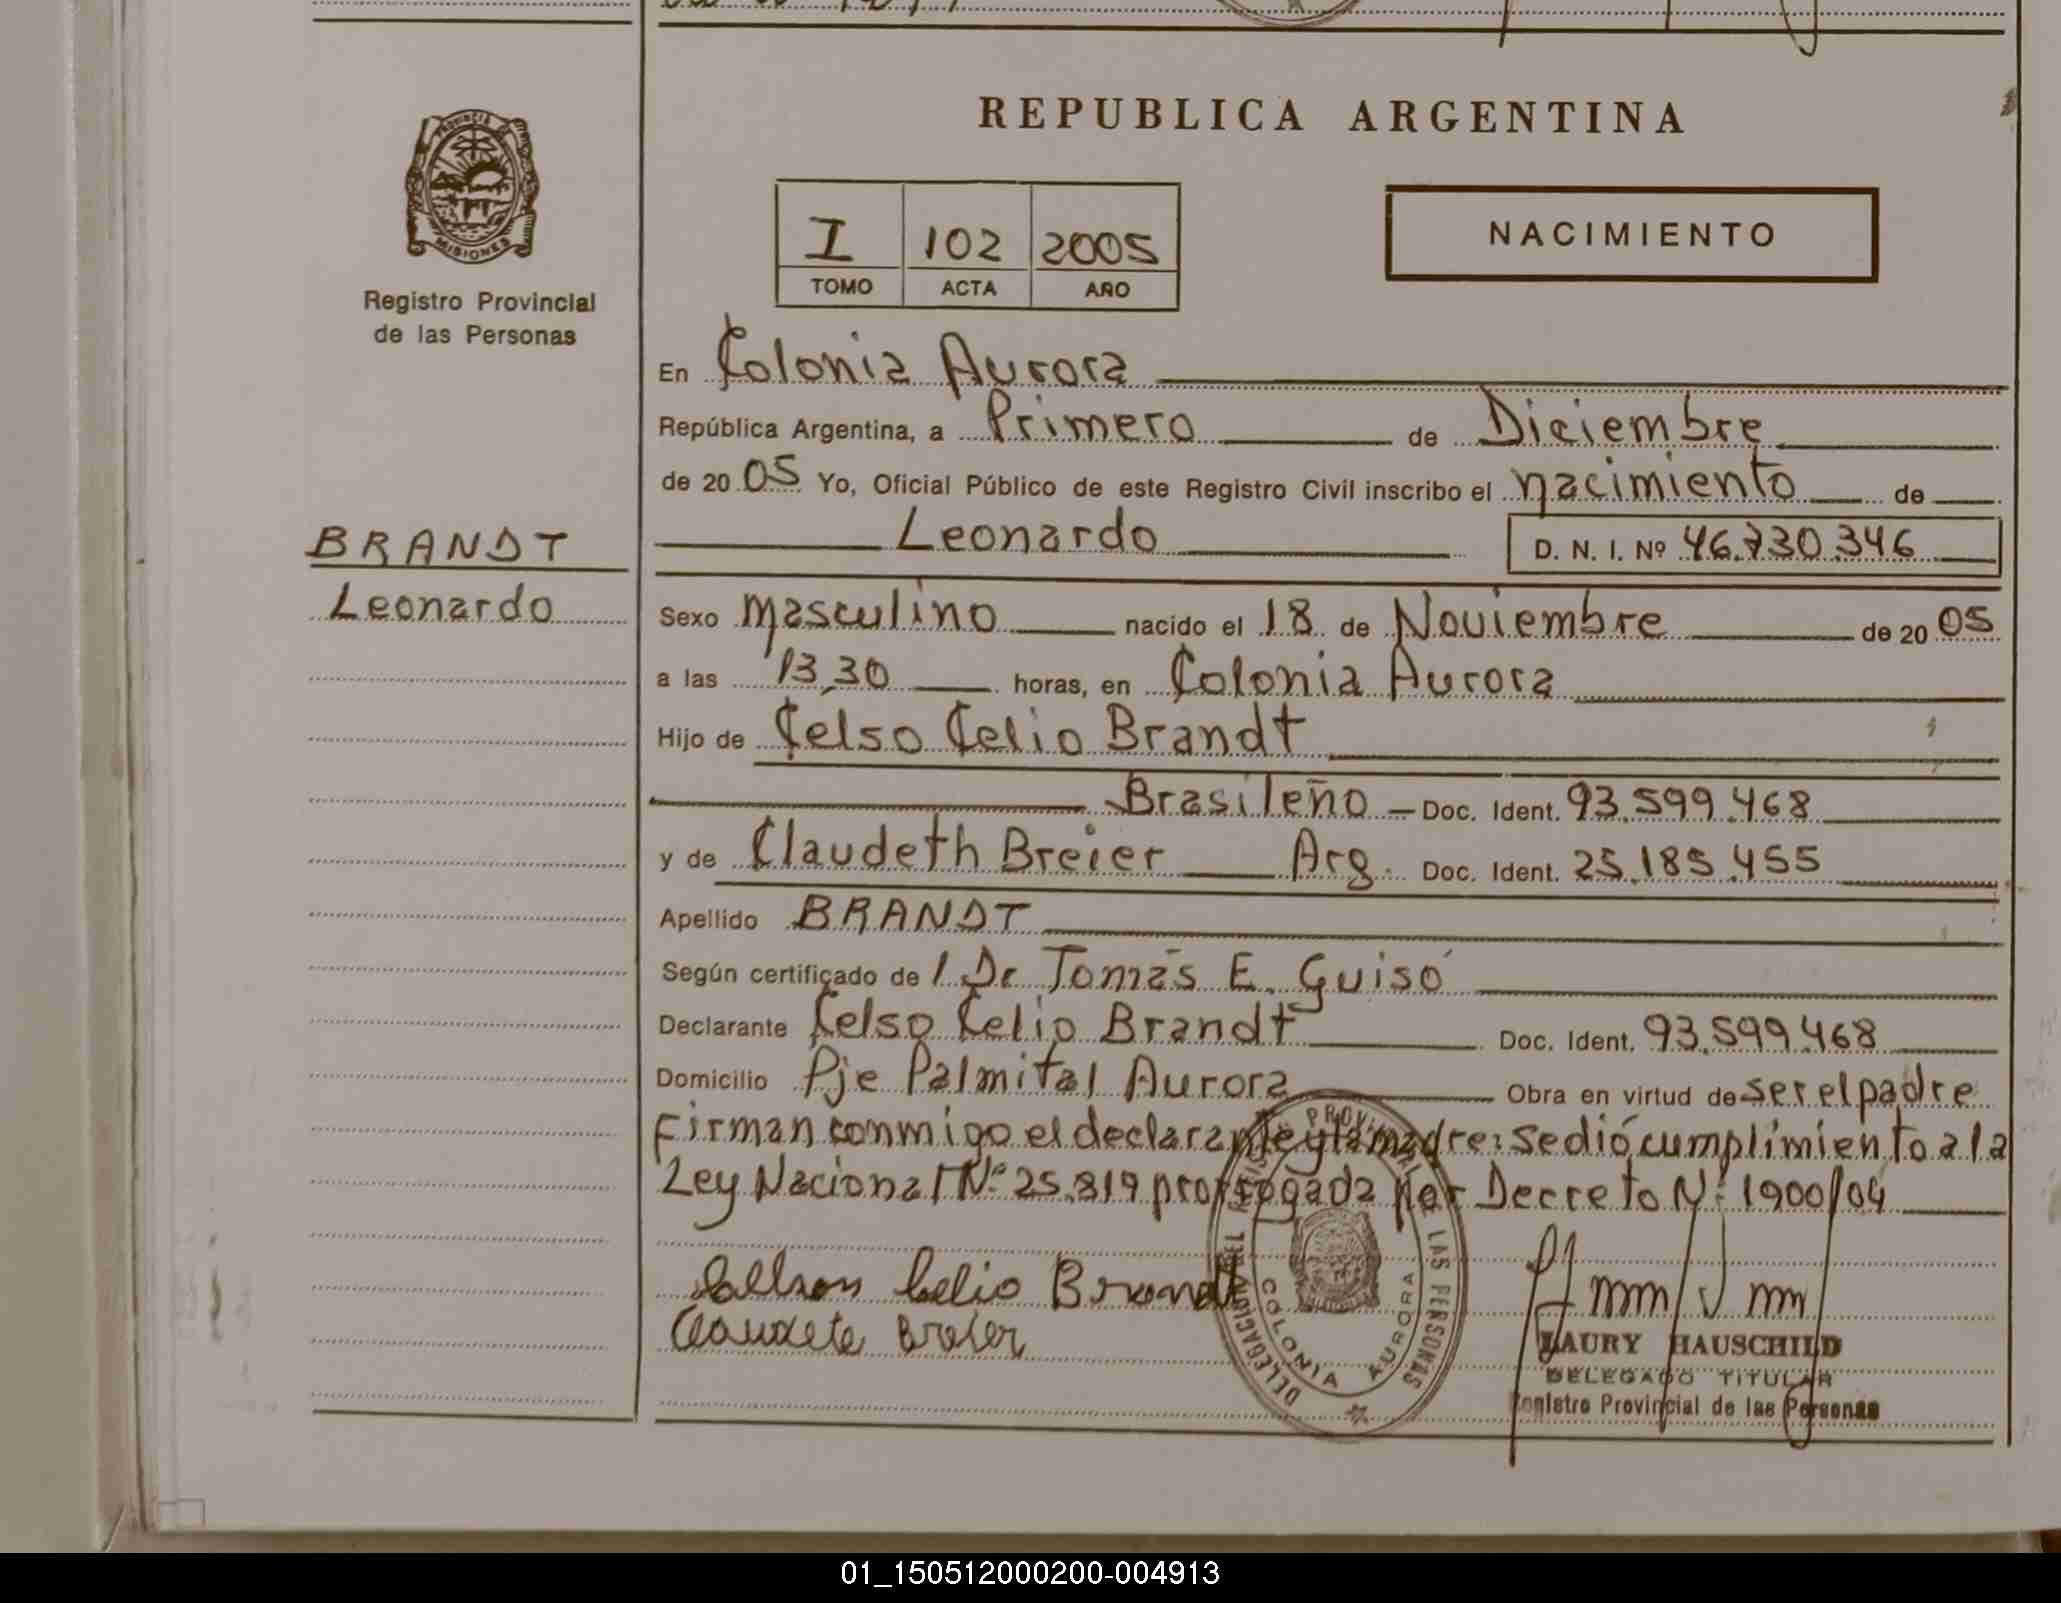 REPUBLICA ARGENTINA
PROVINCIA DE MISIONES
Registro Provincial
de las Personas
I 102 2005
TOMO ACTA AÑO
NACIMIENTO
En Colonia Aurora
República Argentina, a Primero de Diciembre
de 20 05 Yo, Oficial Público de este Registro Civil inscribo el nacimiento de
Leonardo D. N. I. Nº 46.730.346
BRANDT
Leonardo
Sexo Masculino nacido el 18 de Noviembre de 20 05
a las 13,30 horas, en Colonia Aurora
Hijo de Celso Celio Brandt
Brasileño – Doc. Ident. 93.599.468
y de Claudeth Breier Arg. Doc. Ident. 25.185.455
Apellido BRANDT
Según certificado de / Dr Tomás E. Guisó
Declarante Celso Celio Brandt Doc. Ident. 93.599.468
Domicilio Pje Palmital Aurora Obra en virtud de ser el padre
Firman conmigo el declarante y la madre: se dió cumplimiento a la
Ley Nacional Nº 25.819 prorrogada por Decreto Nº 1900/04
Celio Brandt
Claudete Breier
DELEGACION DEL REGISTRO PROVINCIAL DE LAS PERSONAS
COLONIA AURORA
LAURY HAUSCHILD
DELEGADO TITULAR
Registro Provincial de las Personas
01_150512000200-004913